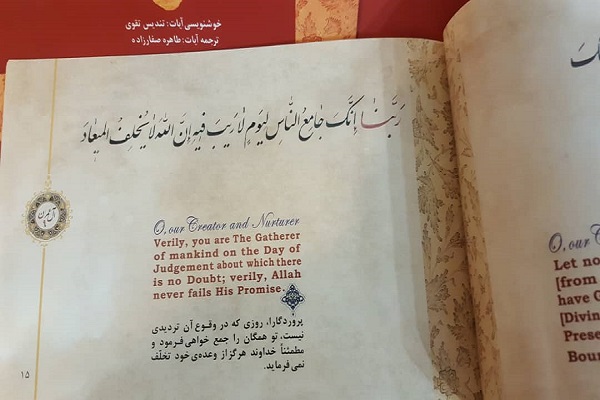 خوشنویسی آیات: تندیس تقوی
ترجمه آیات: طاهره صفارزاده
رَبَّنا إِنَّكَ جامِعُ النّاسِ لِيَومٍ لا رَيبَ فيهِ إِنَّ اللّهَ لا يُخلِفُ الميعادَ
آل عمران
O, our Creator and Nurturer
Verily, you are The Gatherer
of mankind on the Day of
Judgement about which there
is no Doubt; verily, Allah
never fails His Promise.
پروردگارا، روزی که در وقوع آن تردیدی
نیست، تو همگان را جمع خواهی فرمود و
مطمئناً خداوند هرگز از وعده‌ی خود تخلّف
نمی فرماید.
۱۵
O, our C
Let no
[from
have G
[Divin
Prese
Boun